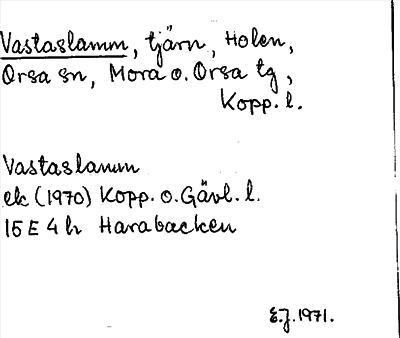 Vastaslamm, tjärn, Holen,
Orsa sn, Mora o. Orsa tg,
Kopp. l.
Vastaslamm
ek (1970) Kopp. o. Gävl. l.
15 E 4 h Harabacken
E.J. 1971.